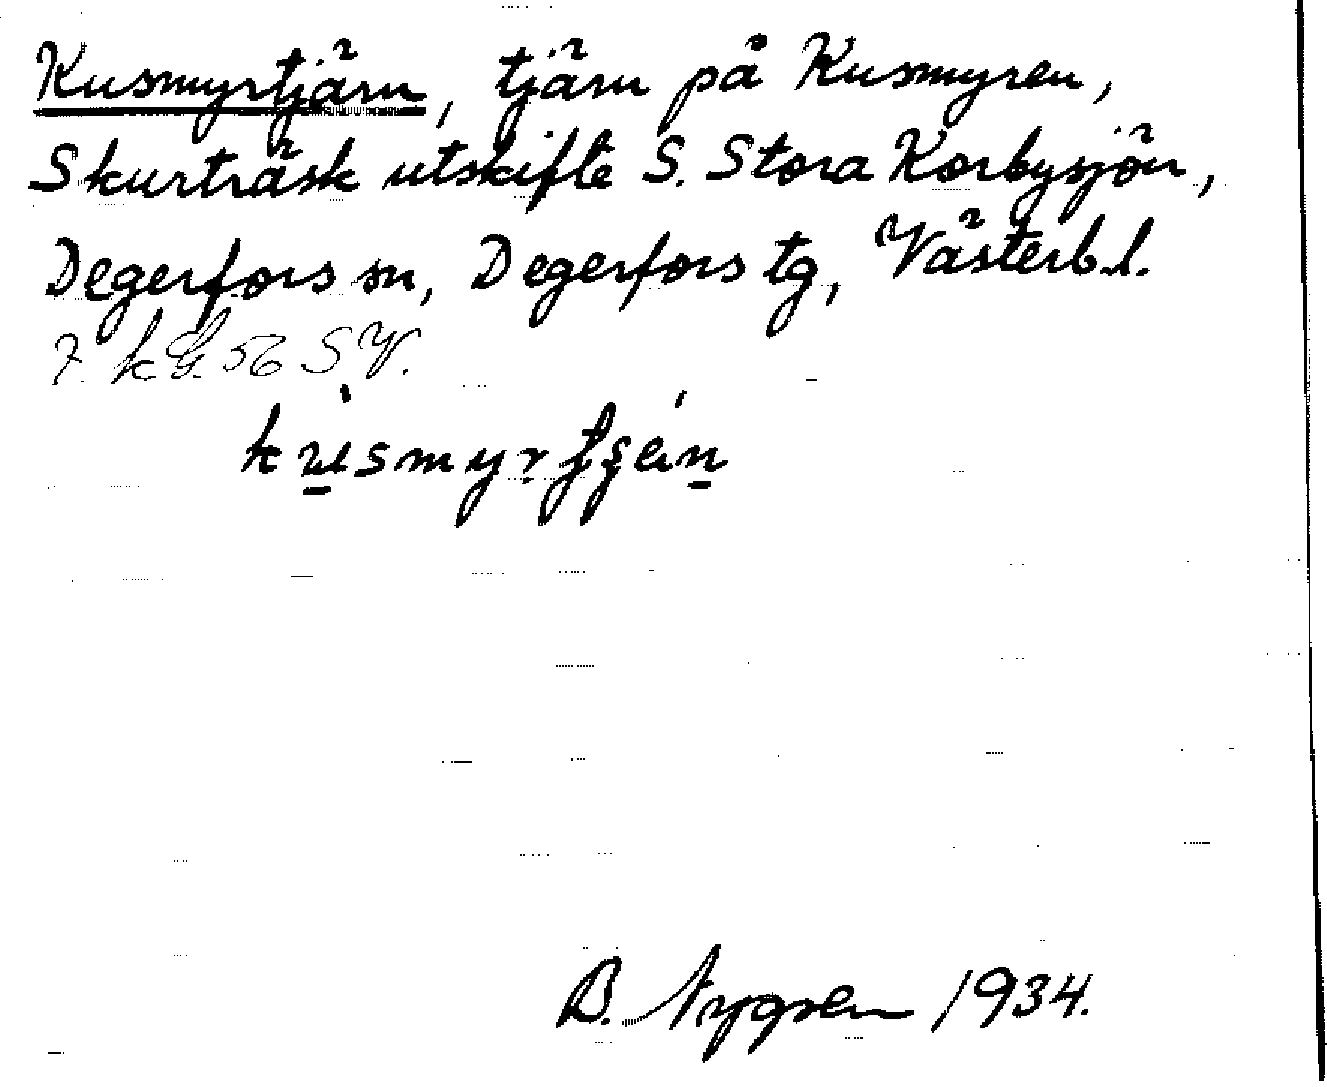 Kusmyrtjärn, tjärn på Kusmyren,
Skurträsk utskifte S. Stora Korbysjön,
Degerfors sn, Degerfors tg, Västerb.l.
J. k G. 56 SV.
B. Nygren 1934.